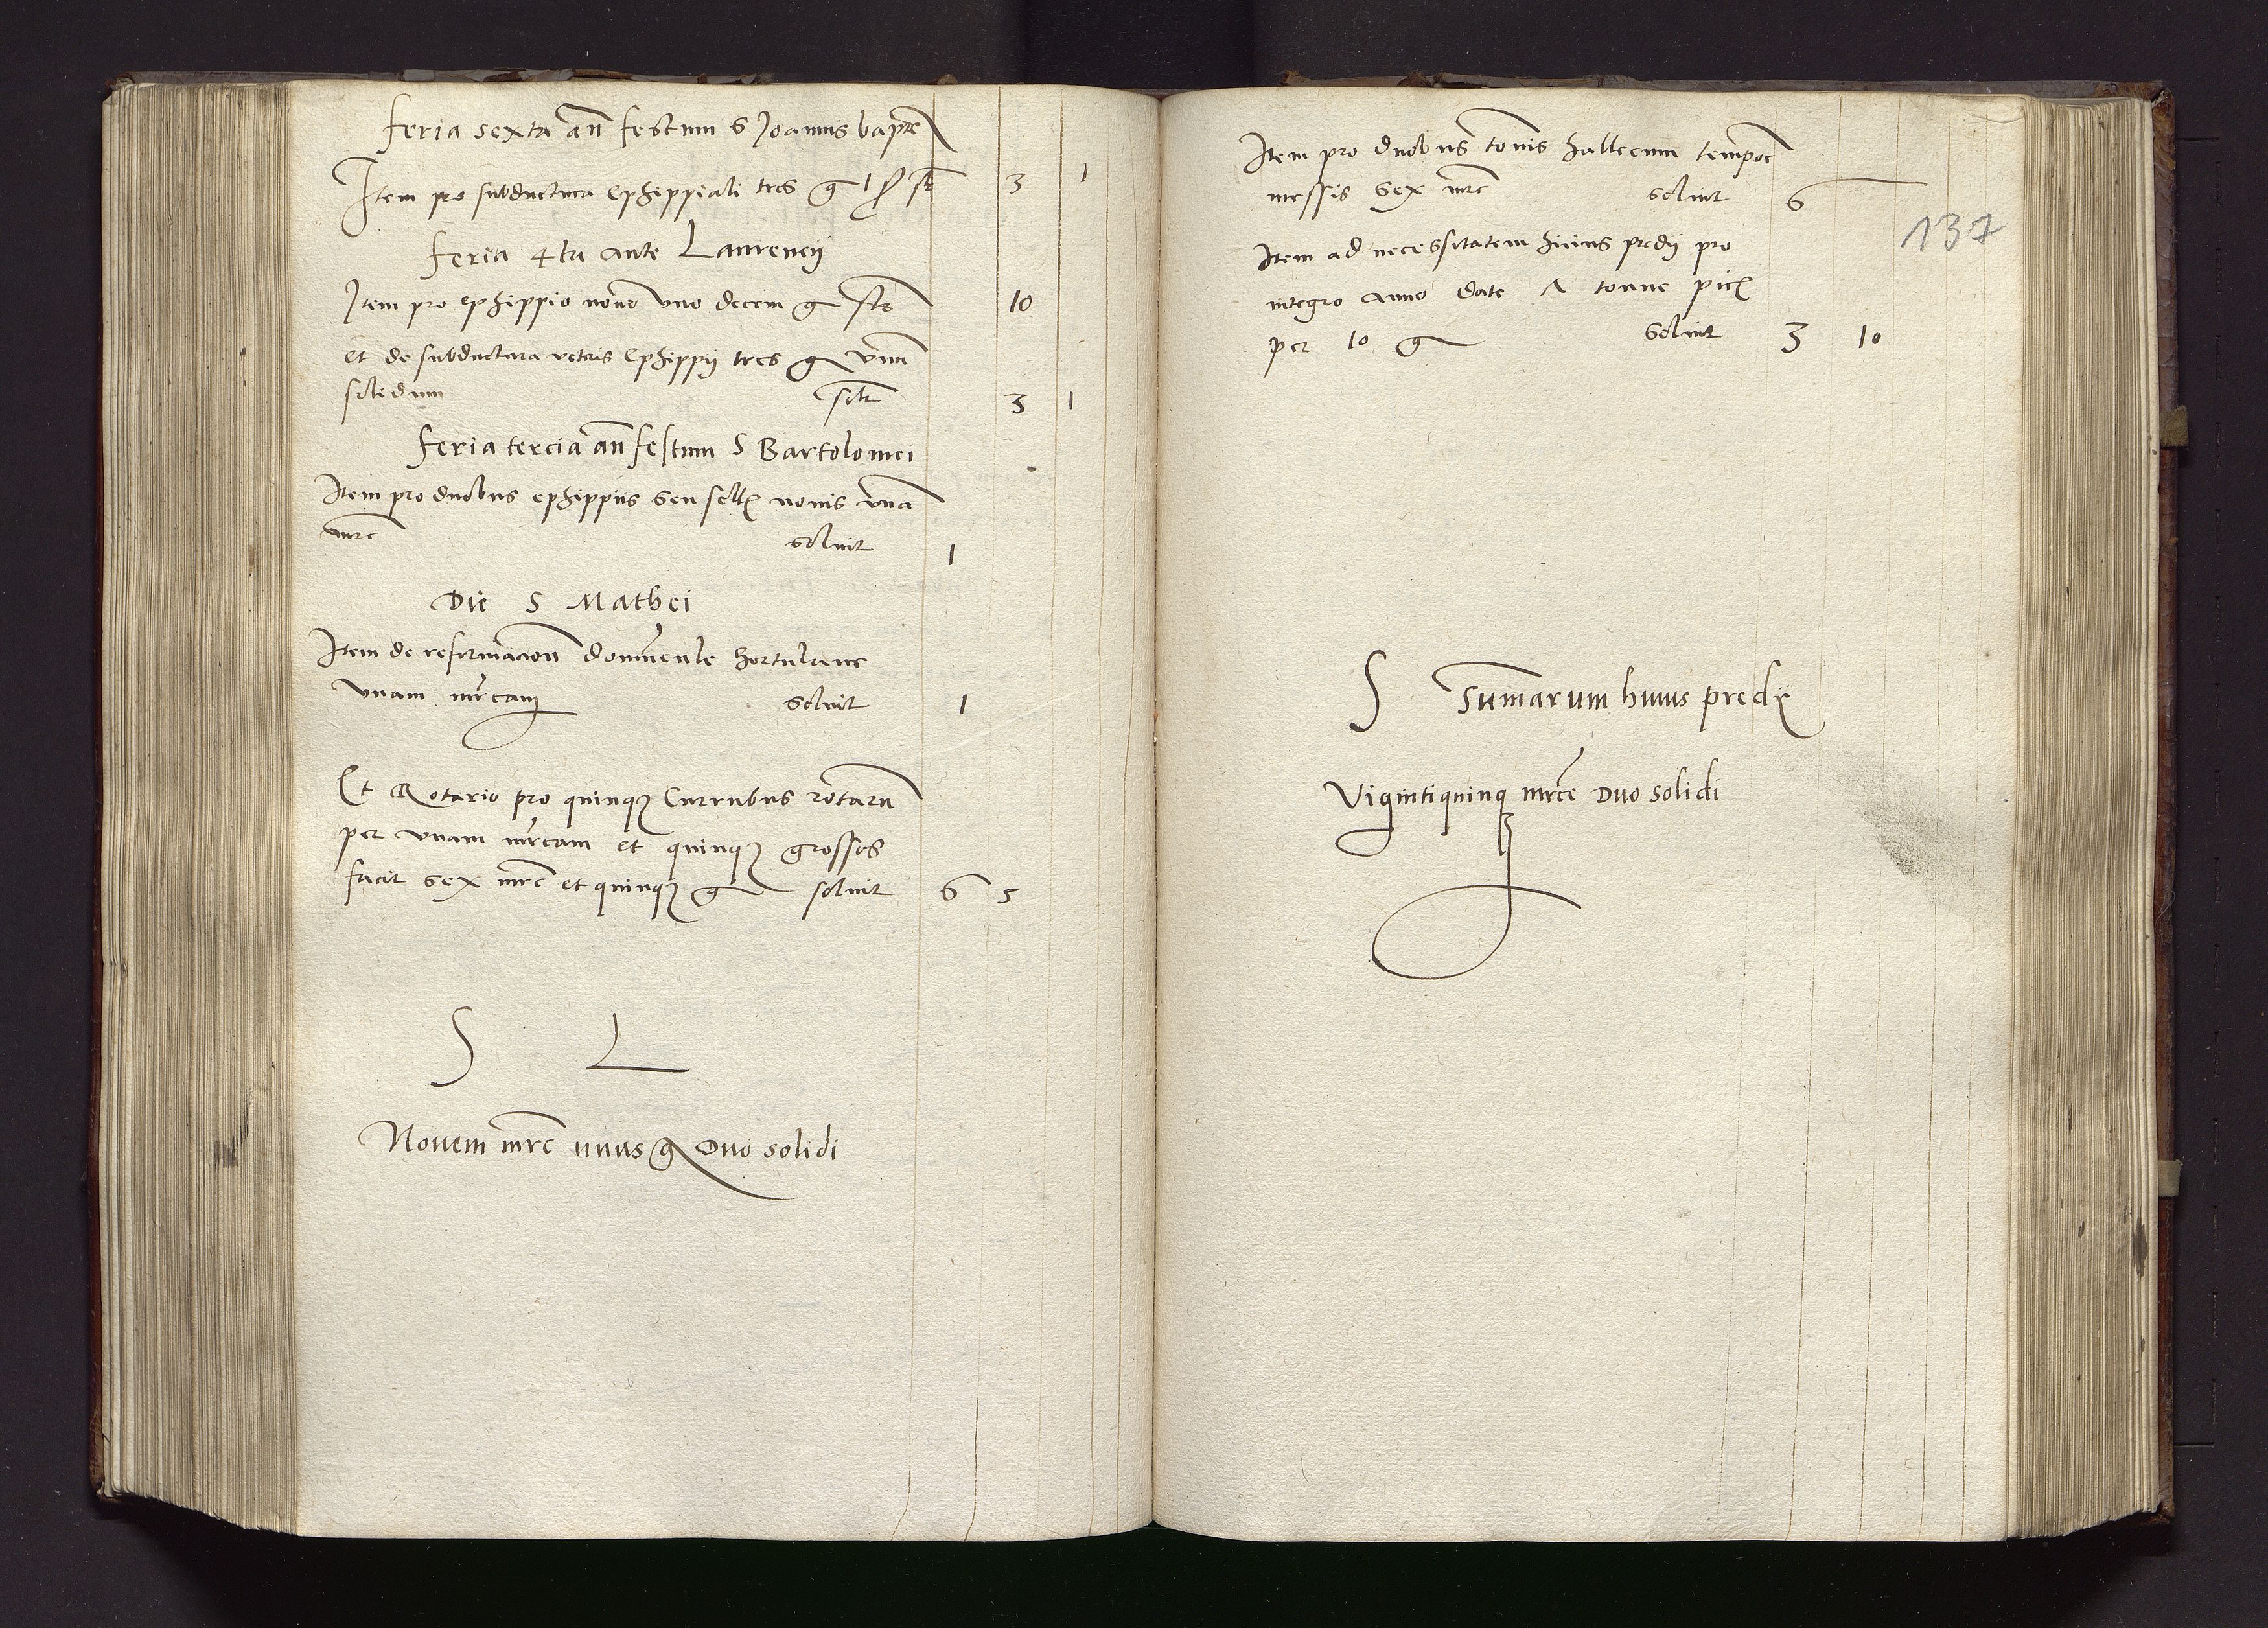 feria sexta an festum S Joannis bapte
Item pro subductura Ephippiali tres g 1 3 1
feria 4ta ante Laurencij
Item pro ephippio nouo vno decem g 10
et de subductura veteris Ephippij tres g vnum
solidum soluit 3 1
feria tercia an festum S Bartolomei
Item pro duobus ephippiis seu sell nouis vna
mrc soluit 1
Die S Mathei
Item de reformacion domuncule hortulane
vnam mrcam soluit 1
Et Rotario pro quinqz Curribus rotaru
per vnam mrcam et quinqz grossos
facit sex mrc et quinqz g soluit 6 5
S L
Novem mrc unus g Duo solidi
137
Item pro duobus tonnis hallecum tempor
messis sex mrc soluit 6
Item ad necessitatem huius predij pro
integro anno date tonne pic
per 10 g soluit 3 10
S Summarum huius predij
Vigintiquinqz mrce Duo solidi